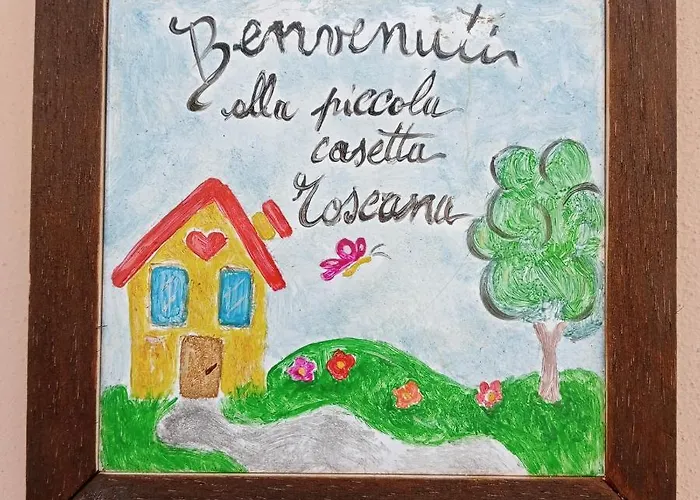 Benvenuti
alla piccola
casetta
Toscana